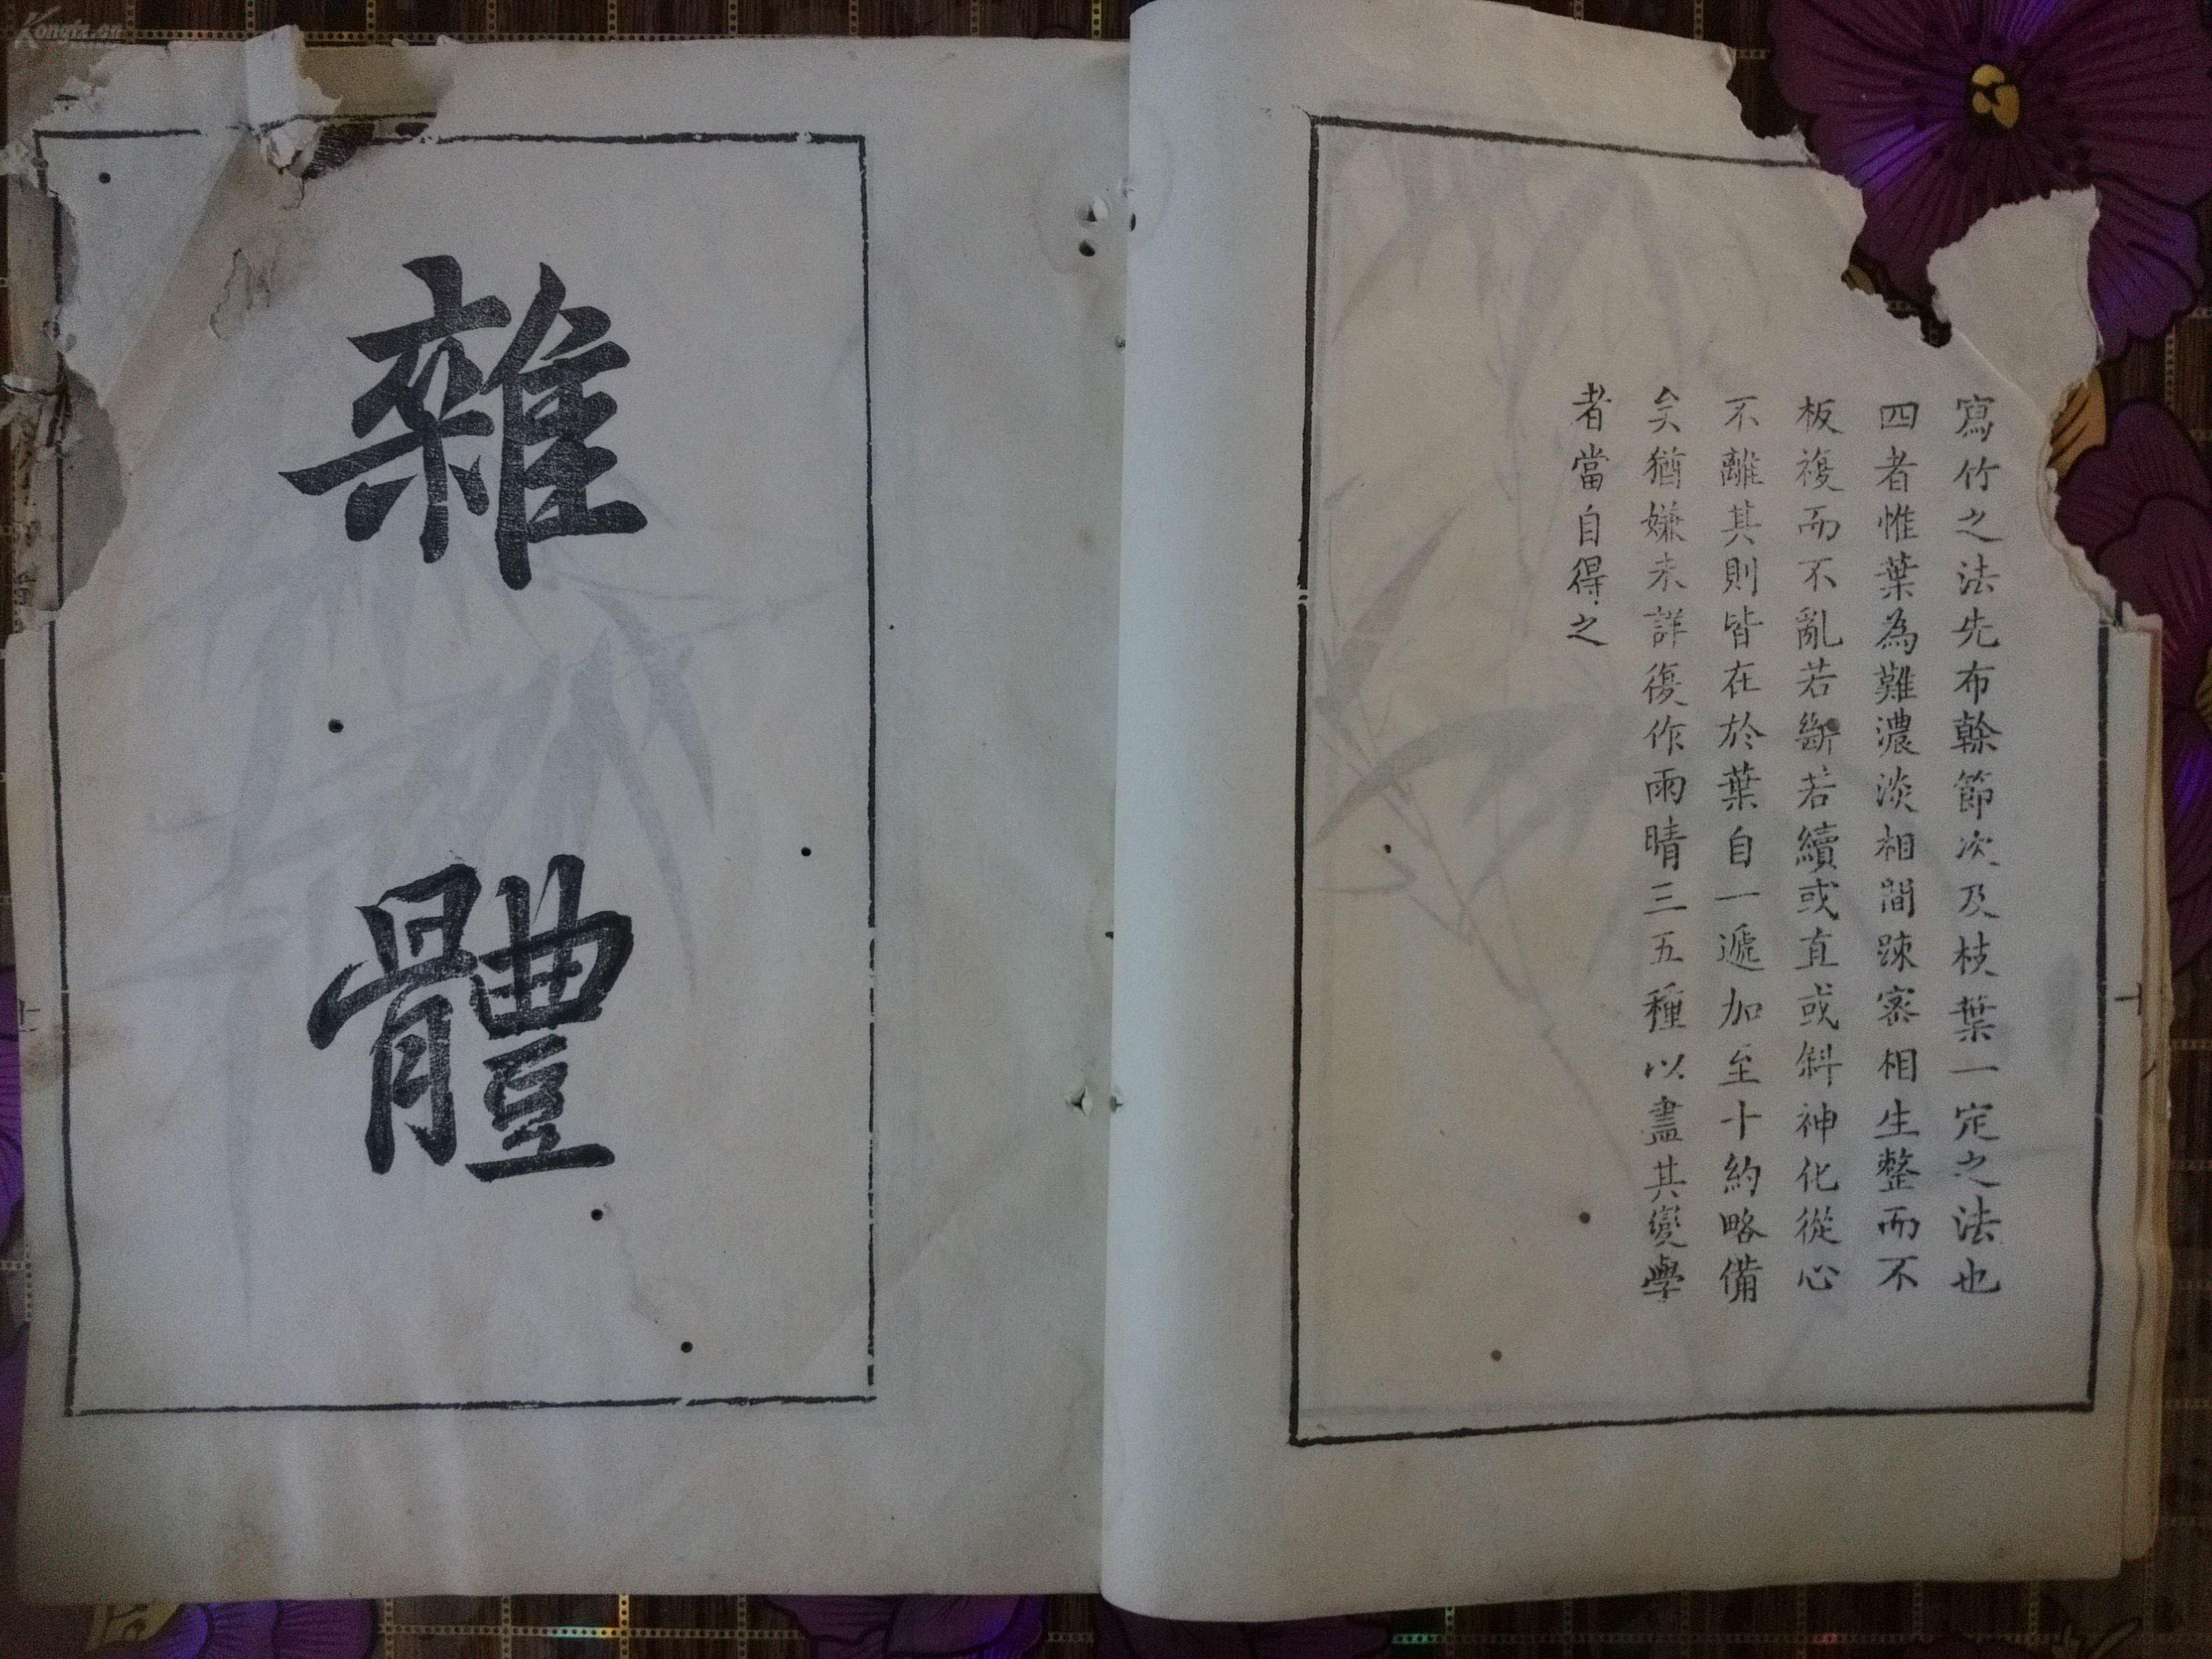 寫竹之法先布榦節次及枝葉一定之法也
四者惟葉為難濃淡相間踈密相生整而不
板複而不亂若斷若續或直或斜神化從心
不離其則皆在於葉自一遞加至十約略備
矣猶嫌未詳復作雨晴三五種以盡其變學
者當自得之
雜體
Kongfz.cn